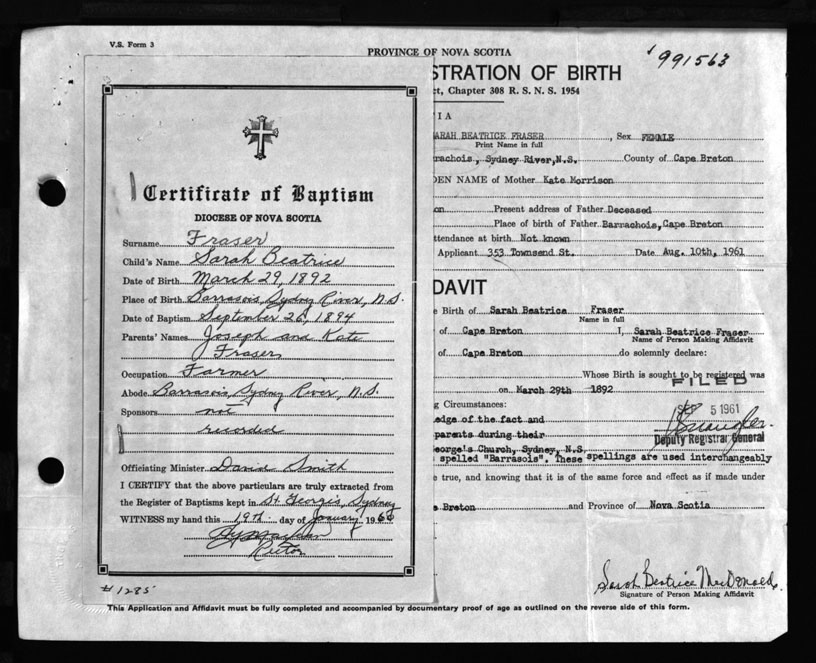 V.S. Form 3
PROVINCE OF NOVA SCOTIA
991563
STRATION OF BIRTH
ct, Chapter 308 R. S. N. S. 1954
IA
SARAH BEATRICE FRASER, Sex FEMALE
Print Name in full
rachois, Sydney River, N.S. County of Cape Breton
DEN NAME of Mother Kate Morrison
on Present address of Father Deceased
Place of birth of Father Barrachois, Cape Breton
ttendance at birth Not known
Applicant 353 Townsend St. Date Aug. 10th, 1961
DAVIT
e Birth of Sarah Beatrice Fraser
Name in full
of Cape Breton I, Sarah Beatrice Fraser
Name of Person Making Affidavit
of Cape Breton do solemnly declare:
Whose Birth is sought to be registered was
FILED
on March 29th 1892
g Circumstances:
SEP 5 1961
edge of the fact and
parents during their
Deputy Registrar General
eorge's Church, Sydney, N.S.
spelled "Barrasois". These spellings are used interchangeably
e true, and knowing that it is of the same force and effect as if made under
e Breton and Province of Nova Scotia
Sarah Beatrice MacDonald
Signature of Person Making Affidavit
Certificate of Baptism
DIOCESE OF NOVA SCOTIA
Surname Fraser
Child's Name Sarah Beatrice
Date of Birth March 29, 1892
Place of Birth Barrasois, Sydney River, N.S.
Date of Baptism September 26, 1894
Parents' Names Joseph and Kate
Fraser
Occupation Farmer
Abode Barrasois, Sydney River, N.S.
Sponsors not
recorded
Officiating Minister David Smith
I CERTIFY that the above particulars are truly extracted from
the Register of Baptisms kept in St Georges, Sydney
WITNESS my hand this 19th day of January 1960
Rector
# 1285
This Application and Affidavit must be fully completed and accompanied by documentary proof of age as outlined on the reverse side of this form.